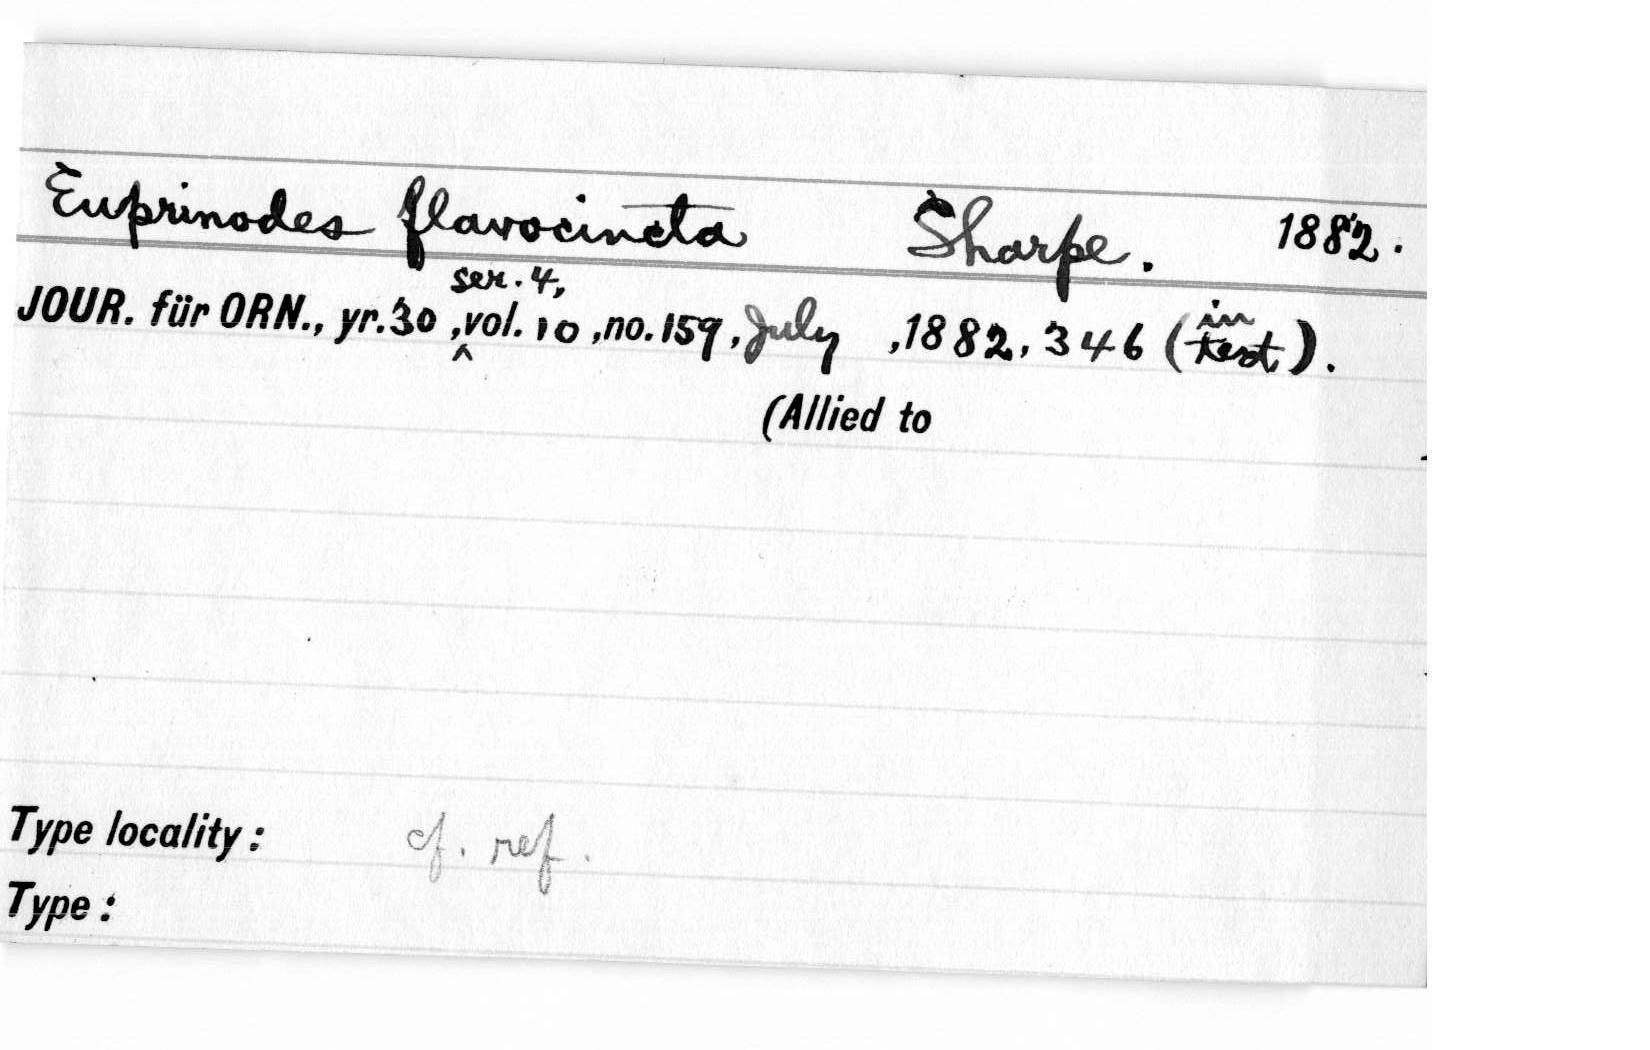 Euprinodes flavocincta Sharpe. 1882.
JOUR. für ORN., yr. 30, ser. 4, vol. 10, no. 159, July, 1882, 346 (in text).
(Allied to
Type locality: cf. ref.
Type: